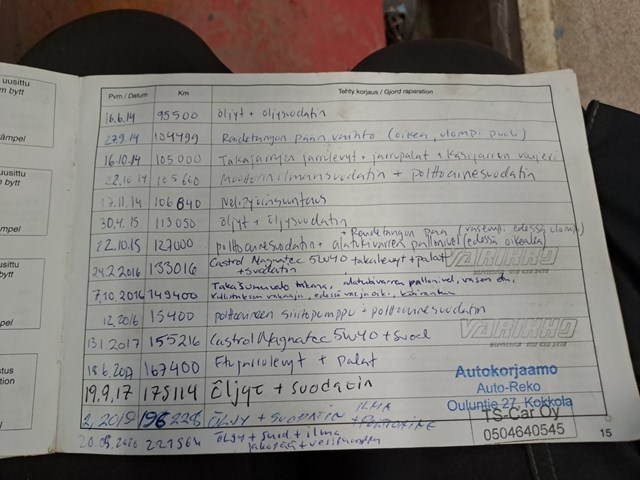 uusittu
n bytt
Pvm / Datum Km Tehty korjaus / Gjord reparation
16.6.14 95500 öljyt + öljysuodatin
27.9.14 104799 Raidetangon pään vaihto (oikea, ulompi puoli)
16.10.14 105000 Takajarrujen jarrulevyt + jarrupalat + käsijarrun vaijeri
22.10.14 105600 Moottorin ilmansuodatin + polttoainesuodatin
17.11.14 106840 Nelipyöräsuuntaus
30.4.15 113050 öljyt + öljysuodatin
+ Raidetangon pää (vasempi edessä ulompi)
22.10.15 127000 polttoainesuodatin + alatukivarren pallonivel (edessä oikealla)
24.2.2016 133016 Castrol Magnatec 5W40 + takalevyt + palat
+ suodatin
VARIKKO
7.10.2016 149400 alatukivarren pallonivel, vasen
12.2016 15400 polttoaineen siirtopumppu + polttoainesuodatin
13.1.2017 155216 Castrol Magnatec 5W40 + suod
VARIKKO
18.6.2017 167400 Etujarrulevyt + palat
19.9.17 175114 Öljyt + suodatin
Autokorjaamo
Auto-Reko
Ouluntie 27, Kokkola
2.2019 196228 ÖLJY + SUODATIN ILMA
TS-Car Oy
0504640545
20.05.2020 221564 ÖLJY + suod + ilma
jakopää + vesipumppu
15
ämpel
uusittu
n bytt
mpel
ittu
bytt
pel
stus
tion
el